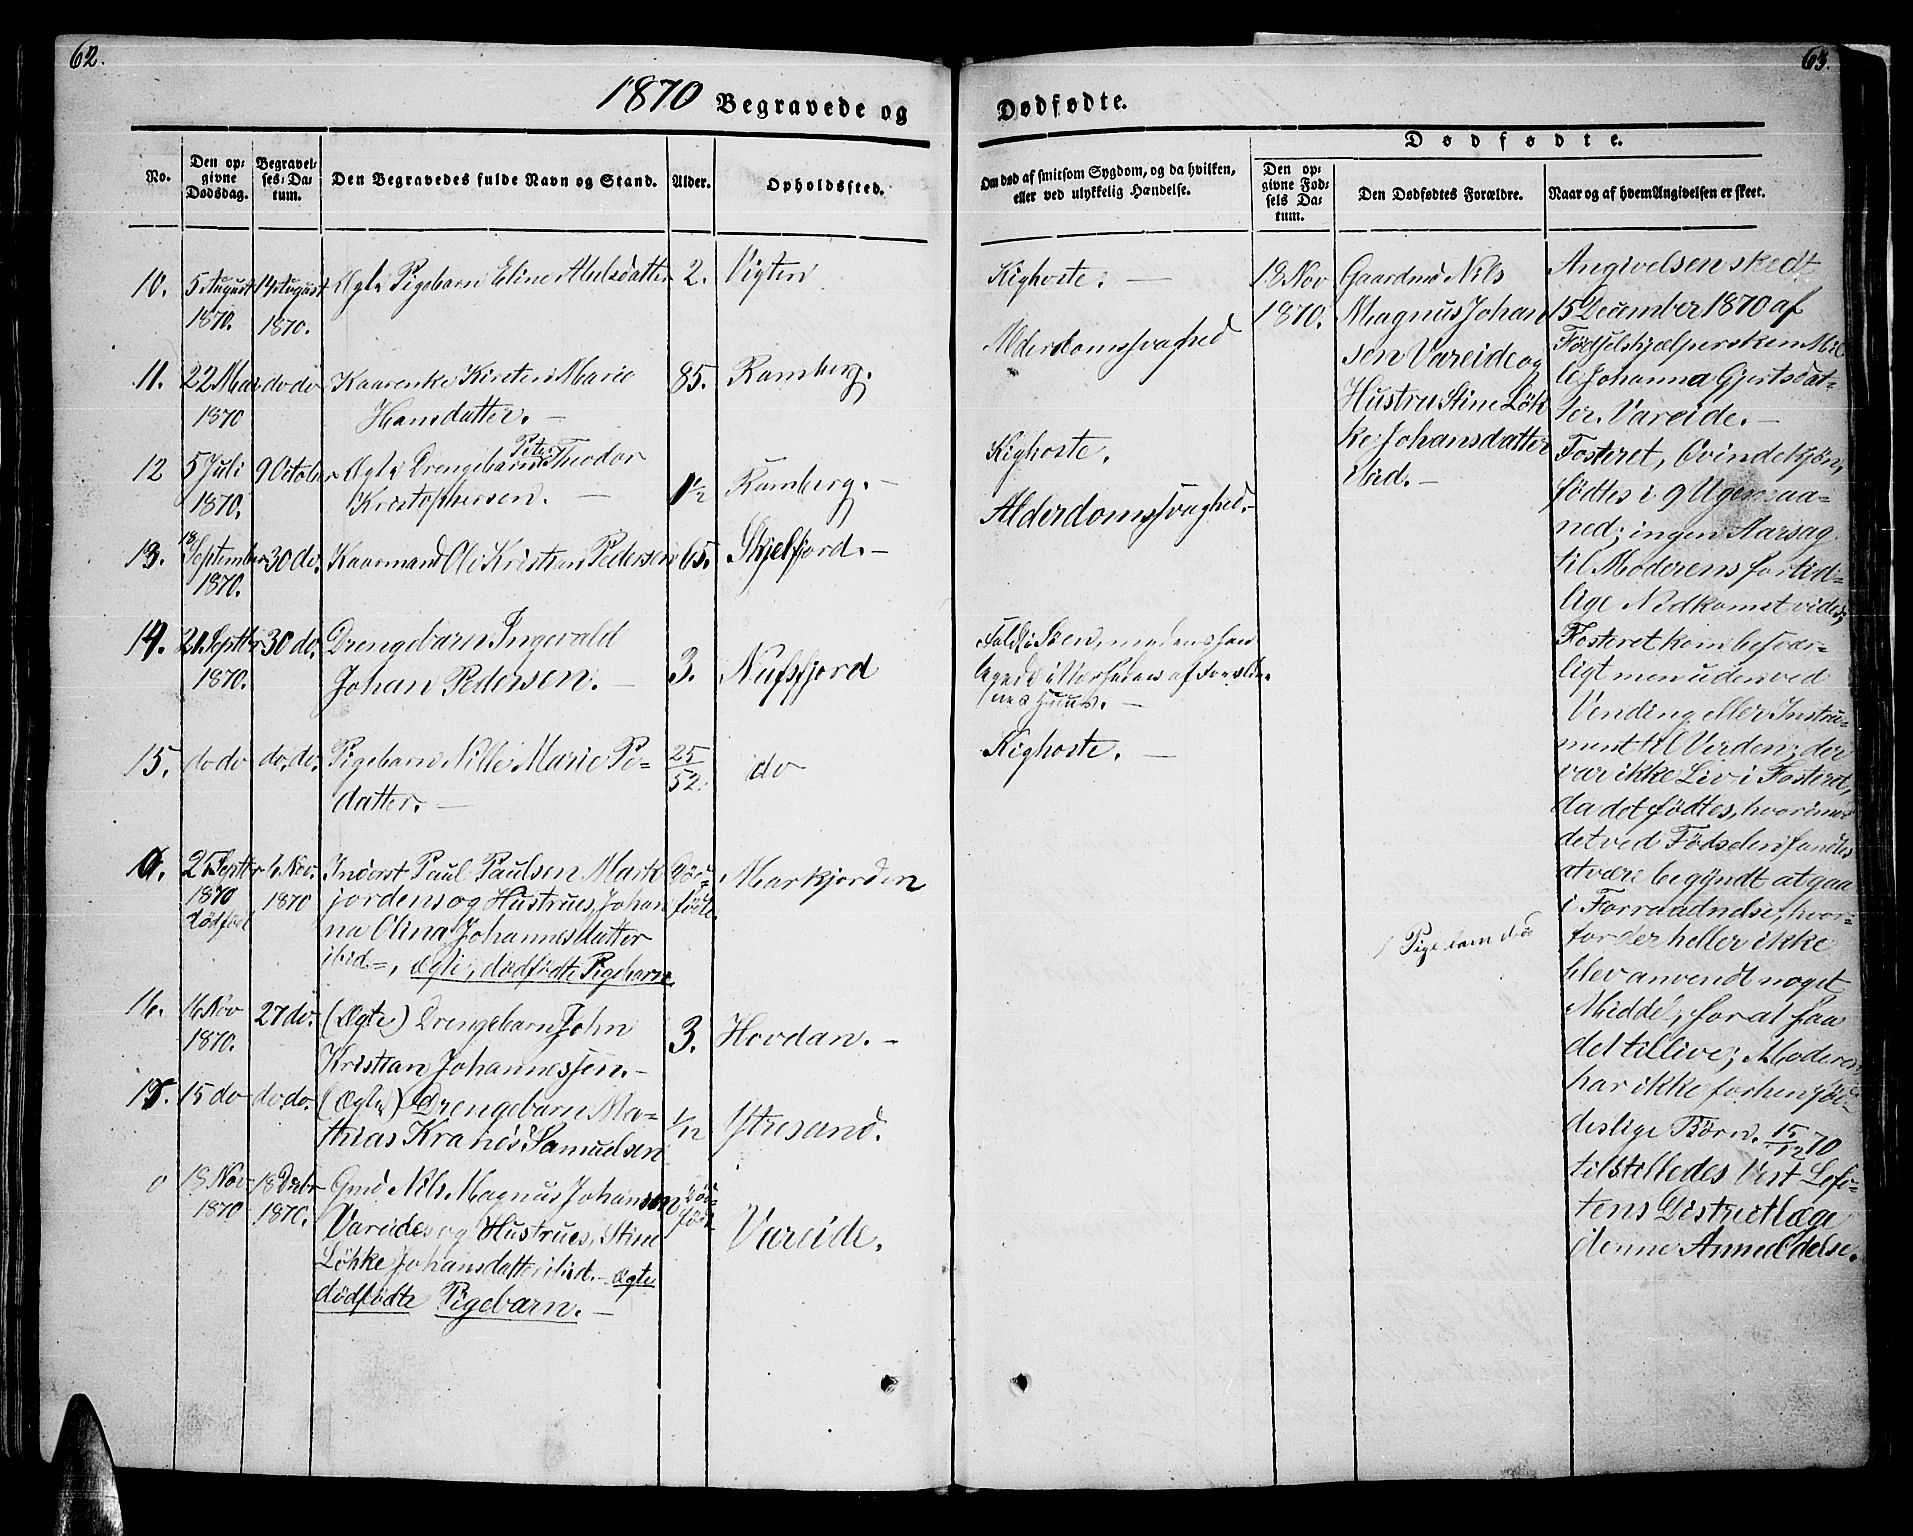 62.
1870 Begravede og
No.
Den op-
givne
Dødsdag.
Begravel-
ses-Da-
tum.
Den Begravedes fulde Navn og Stand.
Alder.
Opholdssted.
10.
5 August
1870.
14 August
1870.
Ægte Pigebarn Eline Abelsdatter
2.
Vigten
11.
22 Mai
1870
do do
Kaarenke Kirsten Marie
Hansdatter. —
85.
Ramberg.
12
5 Juli
1870.
9 October
Peter
Ægte Drengebarn Theodor
Kristophersen. —
1 1/2
Ramberg. —
13.
18
September
1870.
30 do.
Kaarmand Ole Kristian Pedersen
65.
Skjelfjord. —
14.
21 Septbr
1870.
30 do.
Drengebarn Ingevald
Johan Pedersen. —
3.
Nufsfjord
15.
do do
do. do.
Pigebarn Nille Marie Pe-
datter. —
25
52.
do
0.
25 Septbr
1870
dødfød
6 Nov.
1870
Inderst Paul Paulsen Mark
jordens og Hustrues, Johan
na Olina Johannesdatter
ibid-, ægte, dødfødte Pigebarn
Død-
fødte
Markjorden
16.
16 Nov
1870.
27 do.
(Ægte) Drengebarn John
Kristian Johannessen. —
3.
Hovdan. —
15 do
do. do.
(Ægte) Drengebarn Ma-
thias Kranes Samuelsen
1/12
Ytresand.
0
18 Nov
1870
18 Decbr
1870.
Gmd Nils Magnus Johansen
Vareides og Hustrues, Stine
Løkke Johansdatter ibid. — ægte
dødfødte Pigebarn. —
Død-
født
Vareide.
63.
Dødfødte.
Om død af smitsom Sygdom, og da hvilken,
eller ved ulykkelig Hændelse.
Dødfødte.
Den op-
givne Fød-
sels Da-
tum.
Den Dødfødtes Forældre.
Naar og af hvem Angivelsen er skeet.
Kighoste. —
Alderdomssvaghed
Kighoste.
Alderdomssvaghed. —
Faldt i Søen, medens han
legede i Nærheden af Forældre-
nes Huus. —
Kighoste. —
18 Nov
1870.
Gaardmd Nils
Magnus Johan
sen Vareide og
Hustru Stine Løk
ke Johansdatter
ibid. —
1 Pigebarn dø
Angivelsen skedt
15 December 1870 af
Fødselshjælpersken Mil
le Johanna Gjertsdat-
ter Vareide. —
Fosteret, Qvindekjøn,
fødtes i 9 Ugesmaa-
ned; ingen Aarsag
til Moderens fortid-
lige Nedkomst vides;
Fosteret kom besvær-
ligt men uden ved
Vending eller Instru-
ment til Verden; der
var ikke Liv i Fosteret,
da det fødtes, hvorimod
det ved Fødselen fandtes
at være begyndt at gaa
i Forraadnelse, hvor-
for der heller ikke
blev anvendt noget
Middel, for at faa
det tillive; Moderen
har ikke forhen fød-
deslige Børn. 15/12 70
tilstilledes Vest Lofo-
tens Districtlæge
denne Anmeldelse.